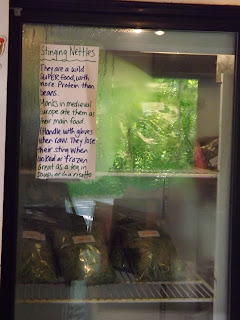 Stinging Nettles
They are a wild
SUPER food, with
more Protein than
beans.
Monks in medieval
Europe ate them as
their main food.
Handle with gloves
when raw. They lose
their sting when
cooked or frozen
Great as a tea, in
soup, or in a risotto